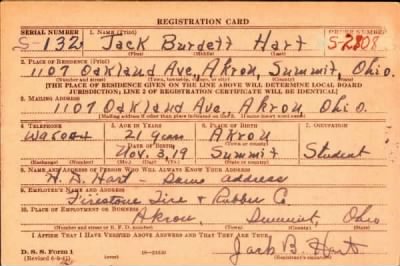 REGISTRATION CARD
SERIAL NUMBER 1. NAME (Print) ORDER NUMBER
S-132 Jack Burdett Hart S-2808
(First) (Middle) (Last)
2. PLACE OF RESIDENCE (Print)
1107 Oakland Ave, Akron, Summit Ohio.
(Number and street) (Town, township, village, or city) (County) (State)
[THE PLACE OF RESIDENCE GIVEN ON THE LINE ABOVE WILL DETERMINE LOCAL BOARD
JURISDICTION; LINE 2 OF REGISTRATION CERTIFICATE WILL BE IDENTICAL]
3. MAILING ADDRESS
1107 Oakland Ave, Akron, Ohio.
[Mailing address if other than place indicated on line 2. If same insert word same]
4. TELEPHONE 5. AGE IN YEARS 6. PLACE OF BIRTH 7. OCCUPATION
21 Years Akron
DATE OF BIRTH
Nov. 3, 19 Summit Student
(Exchange) (Number) (Mo.) (Day) (Yr.) (State or country)
8. NAME AND ADDRESS OF PERSON WHO WILL ALWAYS KNOW YOUR ADDRESS
Hart - Same address
9. EMPLOYER'S NAME AND ADDRESS
Firestone Tire & Rubber Co.
10. PLACE OF EMPLOYMENT OR BUSINESS
Akron, Summit, Ohio
(Number and street or R. F. D. number) (Town) (County) (State)
I AFFIRM THAT I HAVE VERIFIED ABOVE ANSWERS AND THAT THEY ARE TRUE.
D. S. S. Form 1 Jack B. Hart